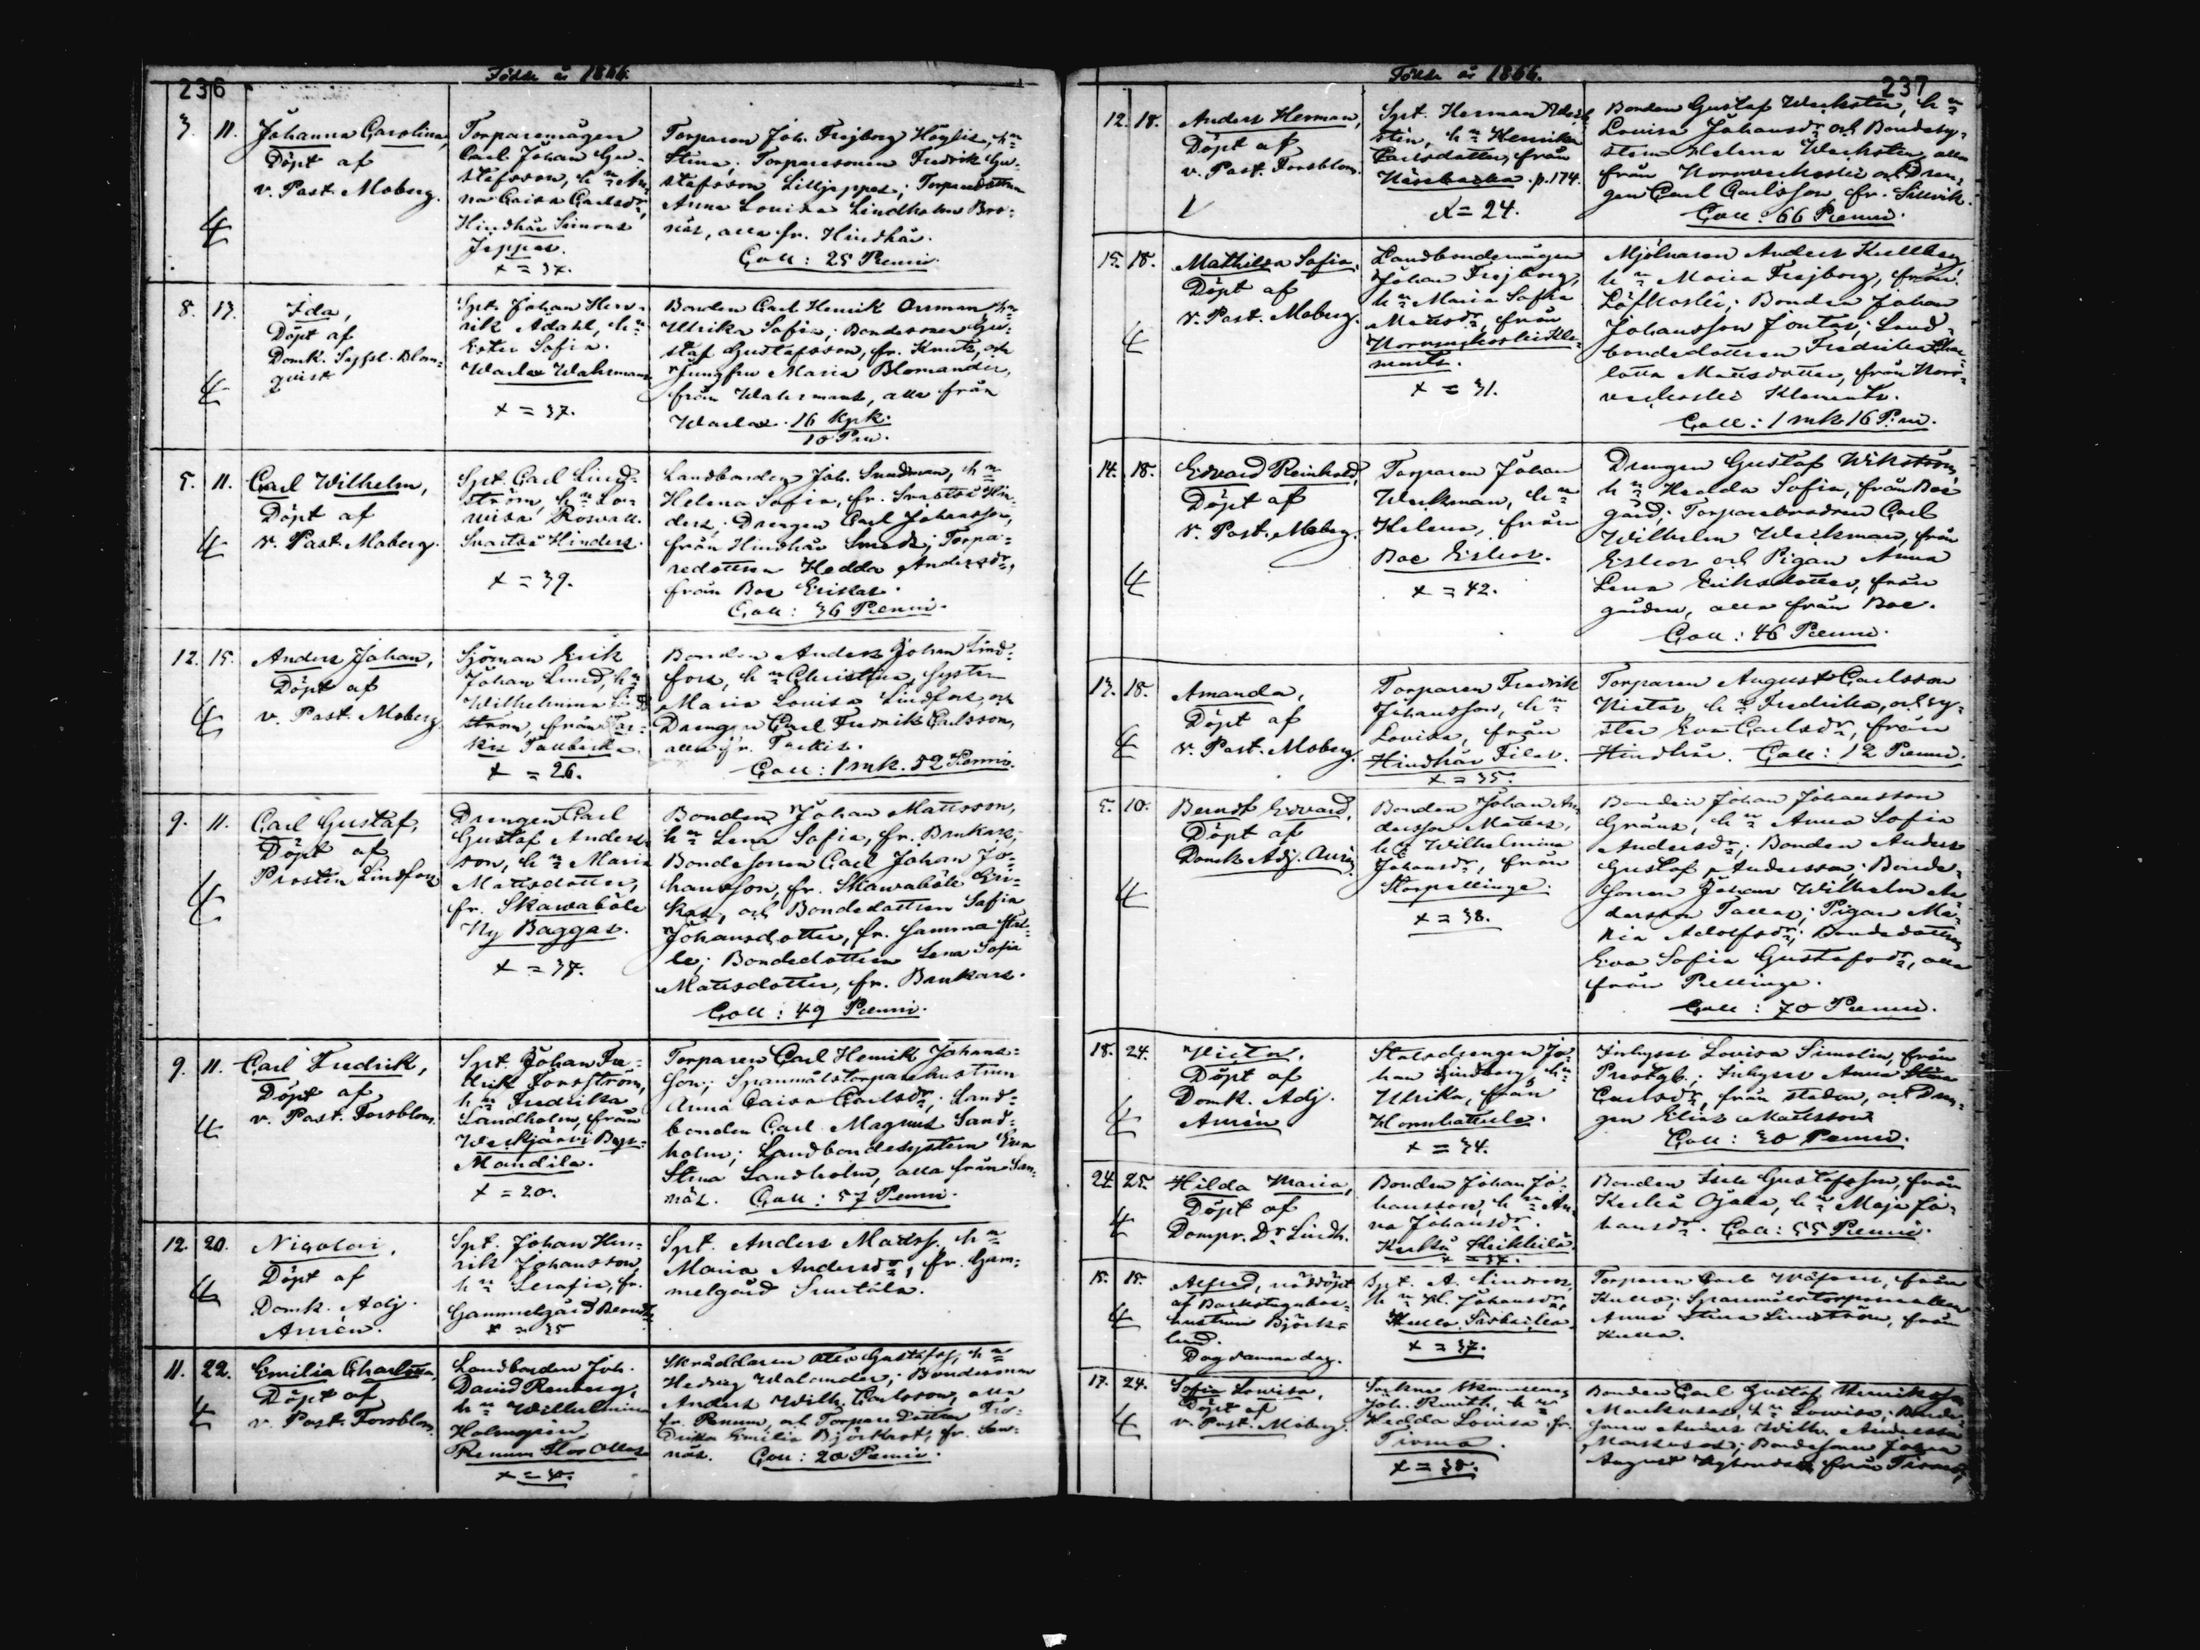 236
Födde år 1866.
3. 11. Johanna Carolina,
Döpt af
v. Past. Moberg.
Torparemågen
Carl Johan Gu-
stafsson, h:n An-
na Caisa Carlsdr,
Hindhår Simons
Jeppas.
x = 37.
Torparen Joh. Frejborg Höglis, h:n
Stina; Torparesonen Fredrik Gu-
stafsson Lilljeppas; Torparedottren
Anna Lovisa Lindholm Bro-
näs, alla fr. Hindhår.
Coll: 25 Penni.
8. 17. Ida,
Döpt af
Domk. Syssl. Blom-
quist
Spt. Johan Hen-
rik Adahl, h:n
Ester Sofia.
Warlax Wahrmans
x = 37.
Bonden Carl Henrik Orrman, h:n
Ulrika Sofia; Bondesonen Gu-
staf Gustafsson, fr. Knuts, och
Jungfru Maria Blomander,
från Wahrmans, alla från
Warlax. 16 Kpk.
10 Pm.
5. 11. Carl Wilhelm,
Döpt af
v. Past. Moberg.
Spt. Carl Lind-
ström, h:n Lo-
wisa Roswall.
Svartså Hinders.
x = 39.
Landbonden Joh. Sundman, h:n
Helena Sofia, fr. Svartså Hin-
ders; Drengen Carl Johansson,
från Hindhår Smeds; Torpa-
redottren Hedda Andersdr,
från Boe Erikas.
Coll: 36 Penni.
12. 15. Anders Johan,
Döpt af
v. Past. Moberg.
Sjöman Erik
Johan Lund, h:n
Wilhelmina Lind-
ström, från Tar-
kis Tallbacka
x = 26.
Bonden Anders Johan Lind-
fors, h:n Christina, syster
Maria Lovisa Lindfors, och
Drengen Carl Fredrik Carlsson,
alla fr. Tarkis.
Coll: 1 mk. 52 Penni.
9. 11. Carl Gustaf,
Döpt af
Prosten Lindfors
Drengen Carl
Gustaf Anders-
son, h:n Maria
Mattsdotter,
fr. Skavaböle
Ny Baggas.
x = 38.
Bonden Johan Mattsson,
h:n Lena Sofia, fr. Brukars;
Bondesonen Carl Johan Jo-
hansson, fr. Skavaböle Eri-
kas, och Bondedottren Sofia
Johansdotter, fr. samma stäl-
le; Bondedottren Lena Sofia
Mattsdotter, fr. Brukars.
Coll: 49 Penni.
9. 11. Carl Fredrik,
Döpt af
v. Past. Forsblom.
Spt. Johan Fre-
drik Forsström,
h:n Fredrika
Sandholm, från
Weckjärvi Bess-
Mandila.
x = 20.
Torparen Carl Henrik Johans-
son; Spanmålstorparehustrun
Anna Caisa Carlsdr; Land-
bonden Carl Magnus Sand-
holm; Landbondesystern Eva
Stina Sandholm, alla från San-
näs. Coll: 57 Penni.
12. 20. Nicolai,
Döpt af
Domk. Adj.
Aurén.
Spt. Johan Hen-
rik Johansson,
h:n Serafia, fr.
Gammelgård Berndts
x = 35
Spt. Anders Madss. h:n
Maria Andersdr, fr. Gam-
melgård
11. 22. Emilia Charlotta,
Döpt af
v. Past. Forsblom.
Landbonden Joh.
David Renberg,
h:n Wilhelmina
Holmgrén
Renum Stor Ollas
Skräddaren Otto Gustafss, h:n
Hedvig Walander; Bondesonen
Anders Wilh. Carlsson, alla
fr. Renum, och Torparedottren Fre-
drika Emilia Björklöf, fr. San-
näs. Coll: 20 Penni.
237
Födde år 1866.
12. 18. Anders Herman,
Döpt af
v. Past. Forsblom.
Spt. Herman Weck-
stén, h:n Henrika
Carlsdotter, från
Näsebacka. p. 174.
x = 24.
Bonden Gustaf Weckstén, h:n
Lovisa Johansdr och Bondesy-
stern Helena Weckstén, alla
från Norrveckoski och Dren-
gen Carl Carlsson, fr. Sillvik.
Coll: 66 Penni.
15. 18. Mathilda Sofia,
Döpt af
v. Past. Moberg.
Landbondemågen
Johan Frejborg,
h:n Maria Sofia
Mattsdr, från
Norrveckoski Kle-
ments.
x = 31.
Mjölnaren Anders Kullberg
h:n Maria Frejborg, från
Löfkoski; Bonden Johan
Johansson Jontas; Land-
bondedottren Fredrika Char-
lotta Mattsdotter, från Norr-
veckoski Klements.
Coll: 1 mk 16 P:ni.
14. 18. Edvard Reinhold,
Döpt af
v. Past. Moberg.
Torparen Johan
Weckman, h:n
Helena, från
Boe Eskos.
x = 42.
Drengen Gustaf Wikström,
h:n Hedda Sofia, från Boe
gård; Torparebrodren Carl
Wilhelm Weckman, från
Eskos och Pigan Anna
Lena Eriksdotter, från
gården, alla från Boe.
Coll: 46 Penni.
13. 18. Amanda,
Döpt af
v. Past. Moberg.
Torparen Fredrik
Johansson, h:n
Lovisa, från
Hindhår Filas.
x = 35.
Torparen August Carlsson
Nietas, h:n Fredrika, och sy-
ster Eva Carlsdr, från
Hindhår. Coll: 12 Penni.
5. 10. Berndt Edvard,
Döpt af
Domk. Adj. Aurén
Bonden Johan An-
dersson Mattas,
h:n Wilhelmina
Johansdr, från
Storpellinge.
x = 38.
Bonden Johan Johansson
Gräns, h:n Anna Sofia
Andersdr; Bonden Anders
Gustaf Andersson; Bonde-
sonen Johan Wilhelm An-
dersson Tallas; Pigan Ma-
ria Adolfsdr; Bondedottren
Eva Sofia Gustafsdr, alla
från Pellinge.
Coll: 70 Penni.
18. 24.
Döpt af
Domk. Adj.
Aurén
Stalldrengen Jo-
han Lindberg, h:n
Ulrika, från
Hornhattula.
x = 34.
Inhyses Lovisa Simolin, från
Prestgb.; Inhyses Anna Stina
Carlsdr, från staden, och Dren-
gen Elias Mattsson
Coll: 30 Penni.
24. 25. Hilda Maria,
Döpt af
Dompr. Dr Lindh.
Bonden Johan Jo-
hansson, h:n An-
na Johansdr.
Kerko Heikkilä.
x = 37.
Bonden Isak Gustafsson, från
Kerko Ojala, h:n Maja Jo-
hansdr. Coll: 55 Penni.
15. 15. Alfred, nöddöpt
af Backstugubos-
hustrun Björk-
lund.
Dog samma dag.
Spt. A. Lindroos,
h:n Johansdr,
Kullo
x = 37.
Torparen Carl från
Kullo; Spanmålstorparenkan
Anna Stina Lindström, från
Kullo.
17. 24. Sofia Lowisa,
Döpt af
v. Past. Moberg.
Joh. h:n
Hedda Lovisa fr.
Tirmo.
x = 38.
Bonden Carl Gustaf Henriksson
Markusas, h:n Lowisa; Bonde-
sonen Anders Wilh. Andersson
Markusas; Bondesonen Johan
August från Tirmo.